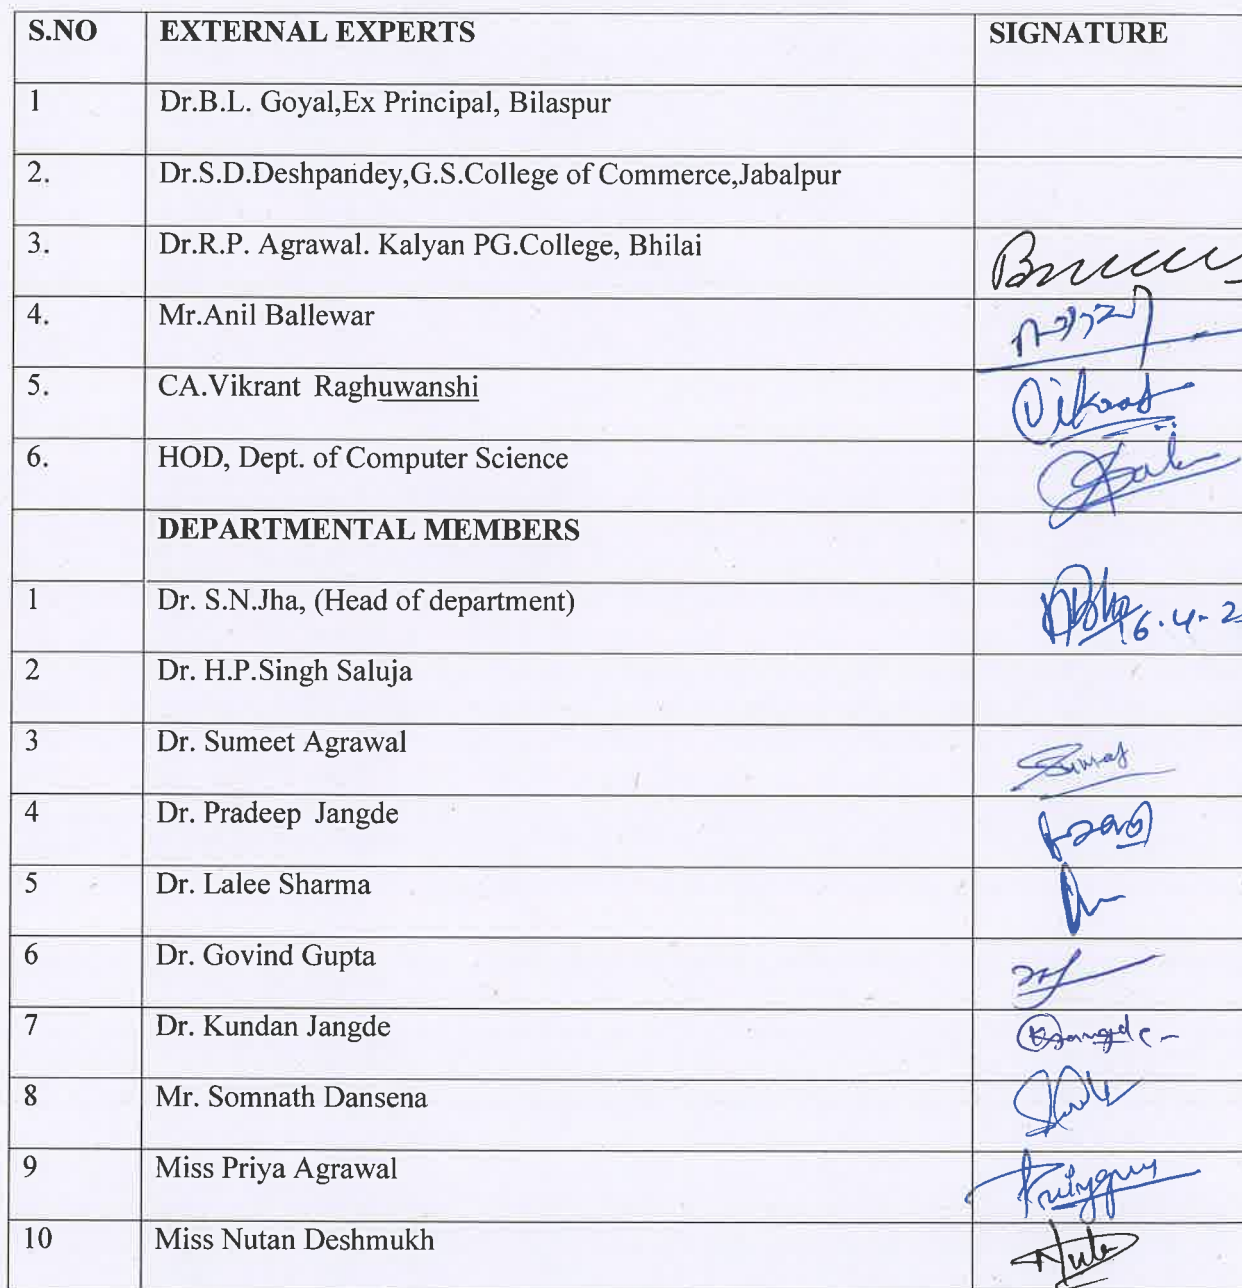 S.NO EXTERNAL EXPERTS SIGNATURE
1 Dr.B.L. Goyal,Ex Principal, Bilaspur
2. Dr.S.D.Deshpandey,G.S.College of Commerce,Jabalpur
3. Dr.R.P. Agrawal. Kalyan PG.College, Bhilai
4. Mr.Anil Ballewar
5. CA.Vikrant Raghuwanshi
6. HOD, Dept. of Computer Science
DEPARTMENTAL MEMBERS
1 Dr. S.N.Jha, (Head of department) 6.4-2
2 Dr. H.P.Singh Saluja
3 Dr. Sumeet Agrawal
4 Dr. Pradeep Jangde
5 Dr. Lalee Sharma
6 Dr. Govind Gupta
7 Dr. Kundan Jangde
8 Mr. Somnath Dansena
9 Miss Priya Agrawal
10 Miss Nutan Deshmukh